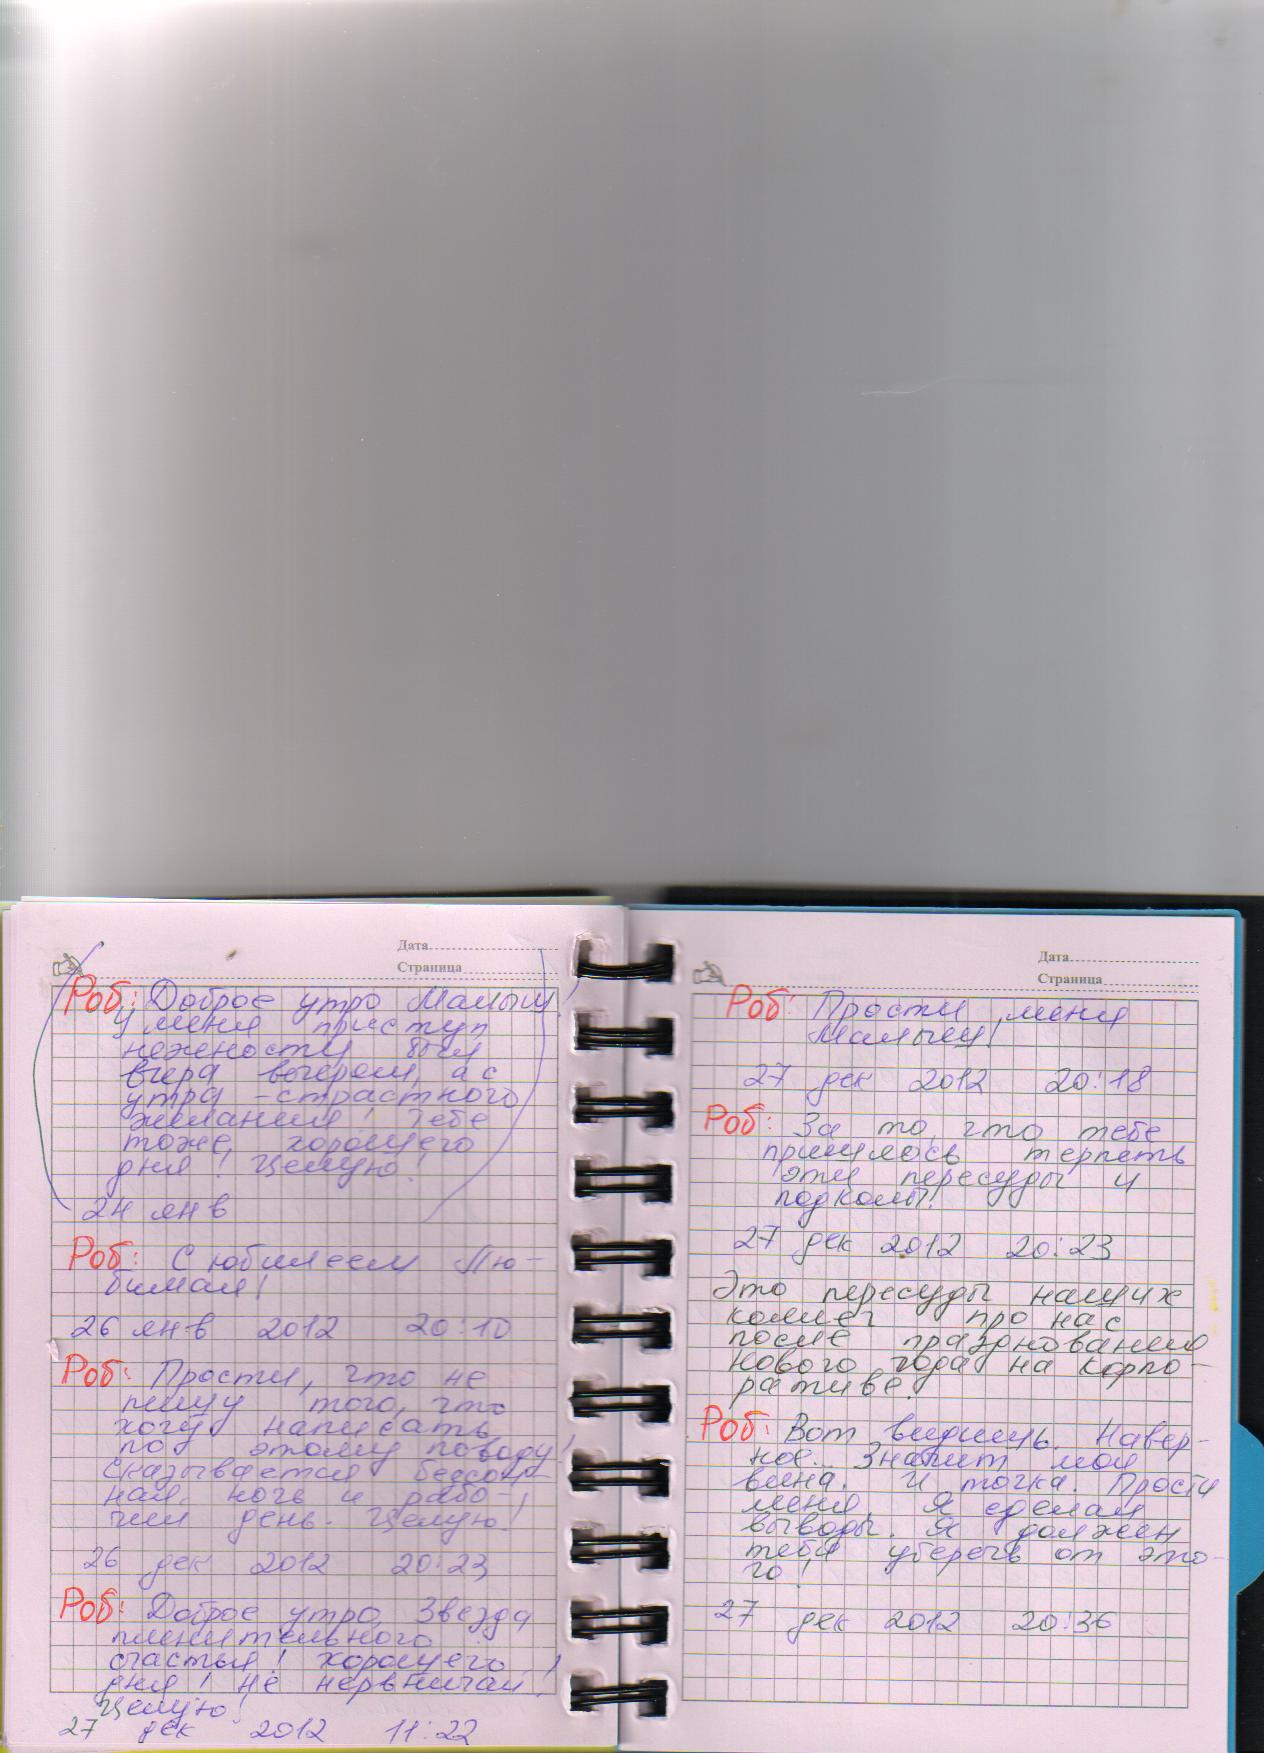 Дата
Страница
Роб: Доброе утро Малыш!
У меня приступ
нежности был
вчера вечером, а с
утра - страстного
желания! Тебе
тоже, хорошего
дня! Целую!
24 янв
Роб: С юбилеем Лю-
бимая!
26 янв 2012 20:10
Роб: Прости, что не
пишу того, что
хочу написать
по этому поводу!
Сказывается бессон-
ная ночь и рабо-
чий день. Целую!
26 дек 2012 20:23
Роб: Доброе утро, Звезда
пленительного
счастья! Хорошего
дня! Не нервничай!
Целую!
27 дек 2012 11:22
Дата
Страница
Роб: Прости меня
Малыш!
27 дек 2012 20:18
Роб: За то, что тебе
пришлось терпеть
эти пересуды и
подколы!
27 дек 2012 20:23
Это пересуды наших
коллег про нас
после празднования
Нового года на корпо-
ративе.
Роб: Вот видишь. Навер-
ное... Значит моя
вина. И точка. Прости
меня. Я сделал
выводы. Я должен
тебя уберечь от это-
го!
27 дек 2012 20:36